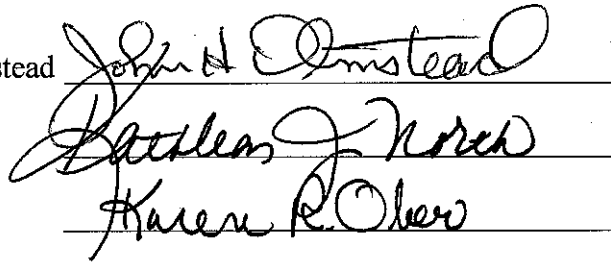 stead John H Olmstead
Kathleen J. North
Karen R. Ober